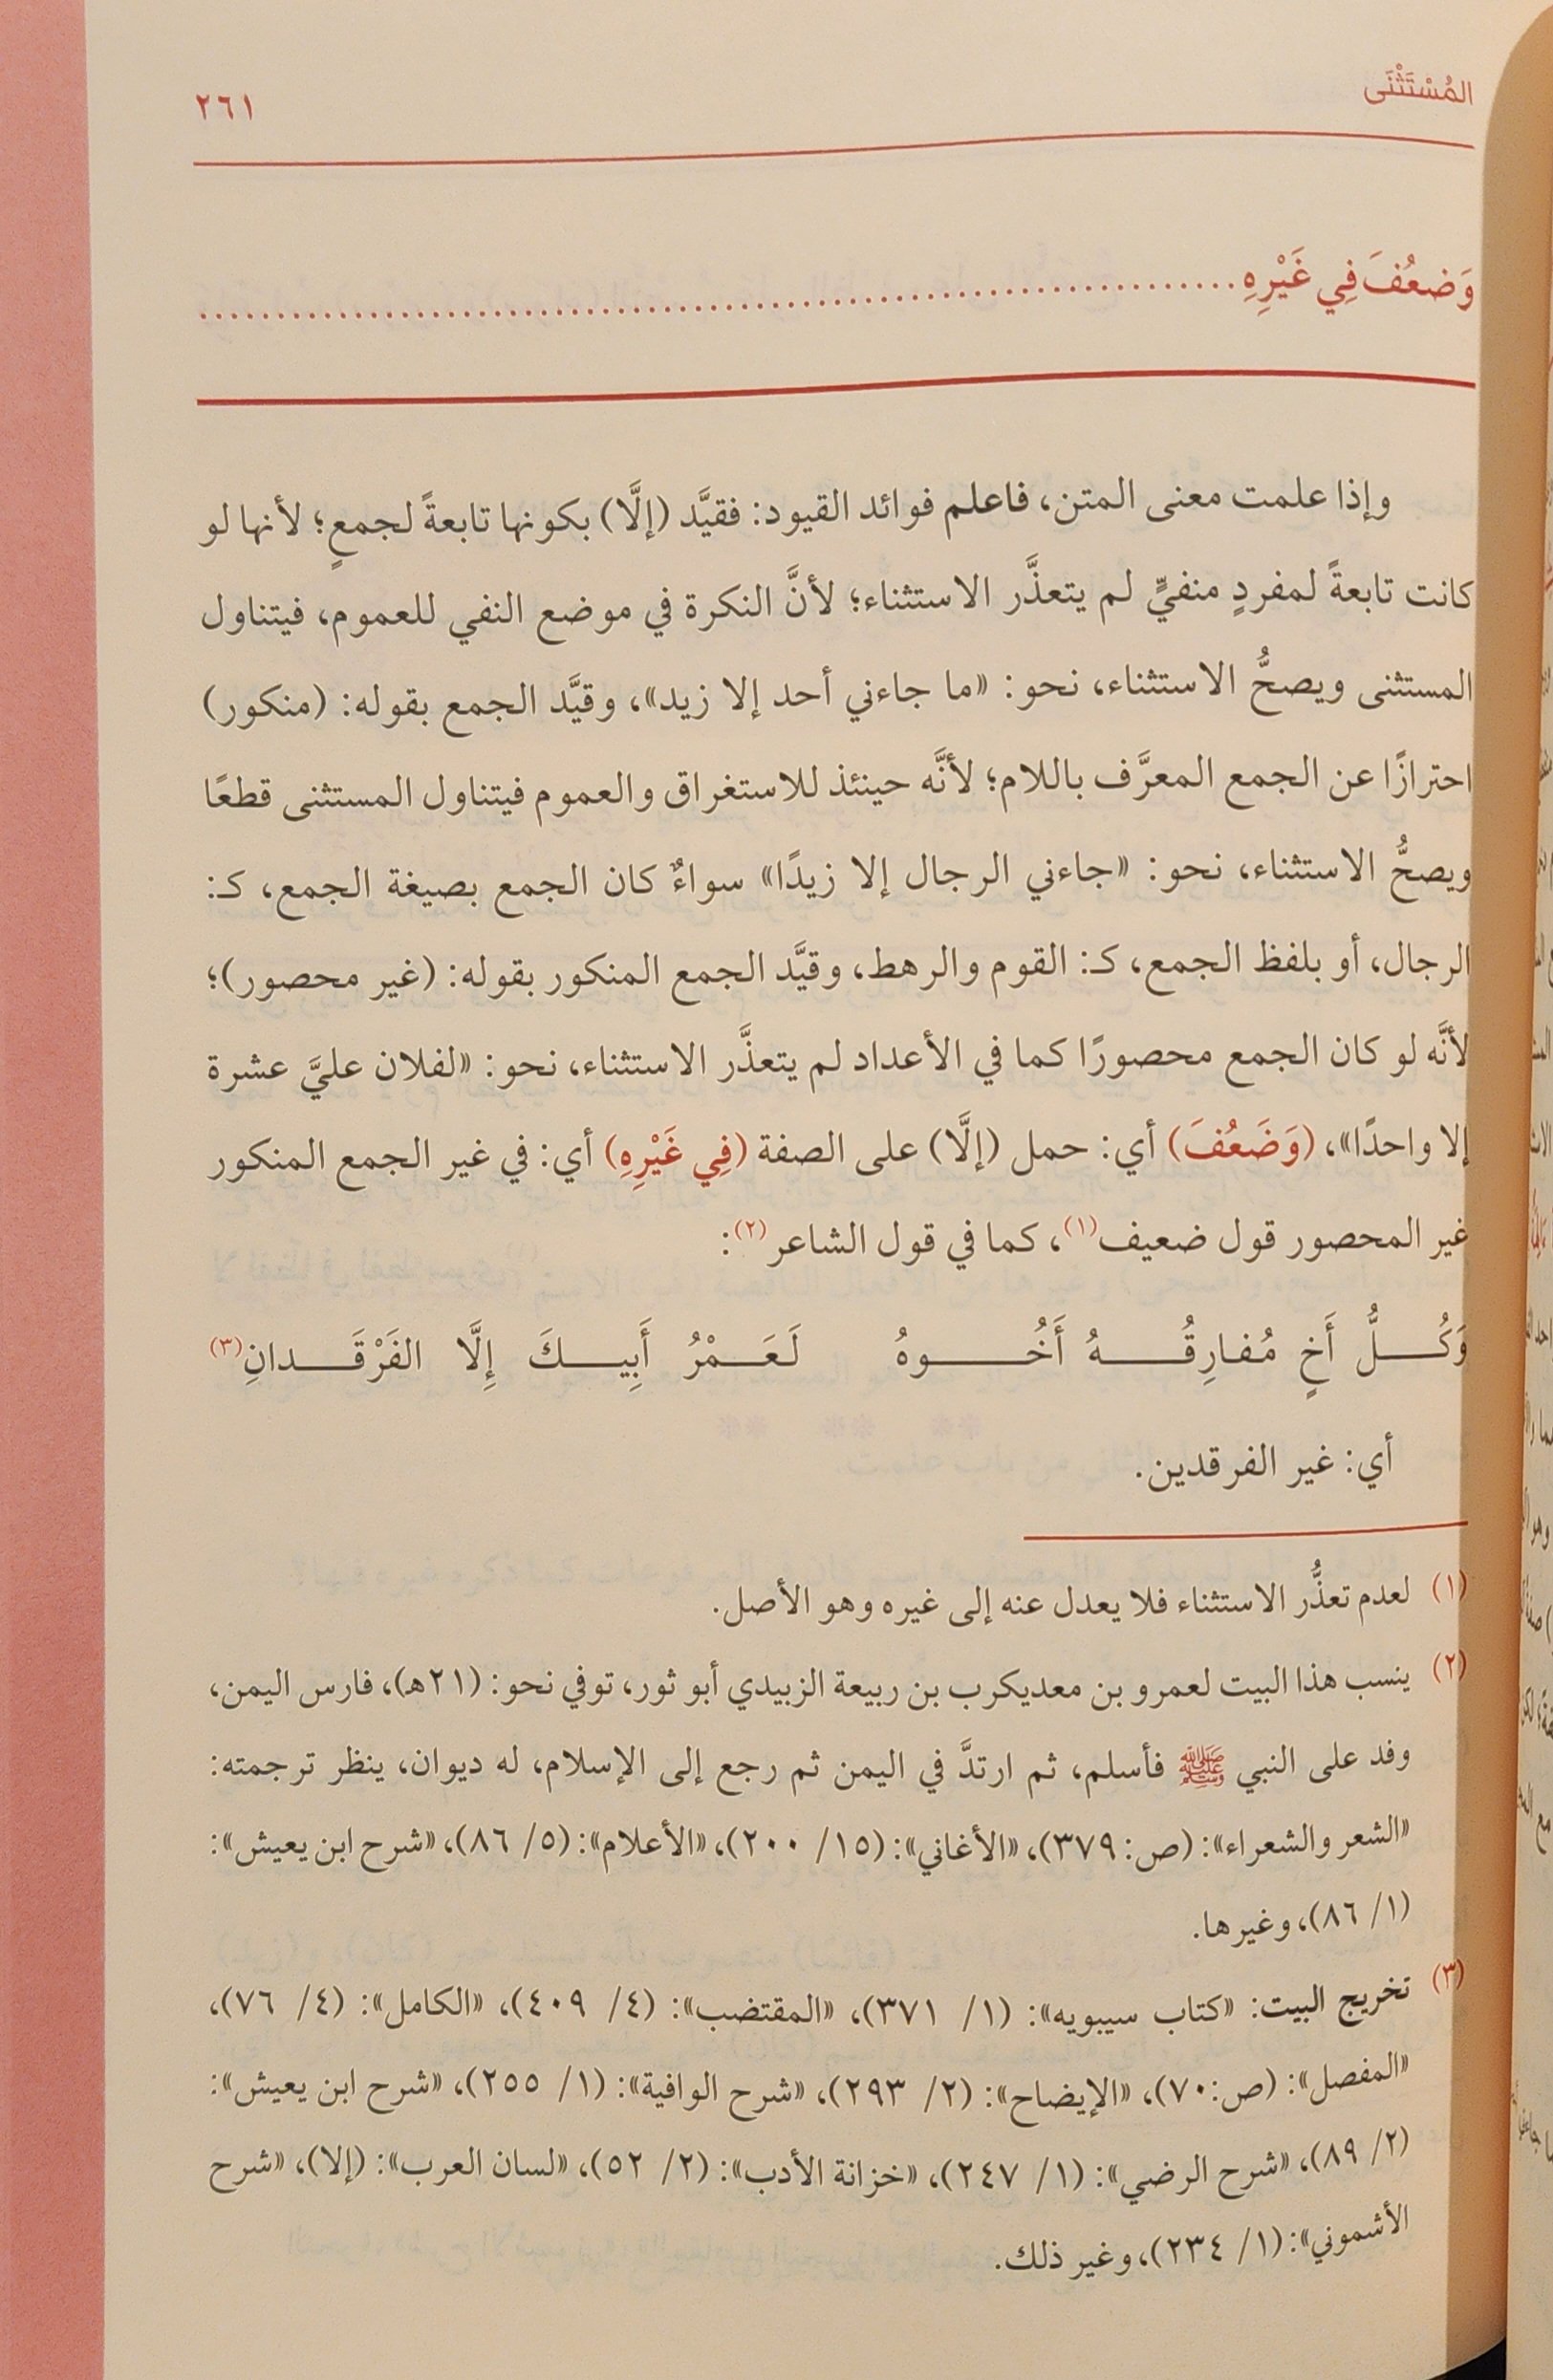 المُسْتَثْنَى
٢٦١
وَضعُفَ فِي غَيْرِهِ
وإذا علمت معنى المتن، فاعلم فوائد القيود: فقيَّد (إلَّا) بكونها تابعةً لجمعٍ؛ لأنها لو
كانت تابعةً لمفردٍ منفيٍّ لم يتعذَّر الاستثناء؛ لأنَّ النكرة في موضع النفي للعموم، فيتناول
المستثنى ويصحُّ الاستثناء، نحو: «ما جاءني أحد إلا زيد»، وقيَّد الجمع بقوله: (منكور)
احترازًا عن الجمع المعرَّف باللام؛ لأنَّه حينئذ للاستغراق والعموم فيتناول المستثنى قطعًا
ويصحُّ الاستثناء، نحو: «جاءني الرجال إلا زيدًا» سواءٌ كان الجمع بصيغة الجمع، كـ:
الرجال، أو بلفظ الجمع، كـ: القوم والرهط، وقيَّد الجمع المنكور بقوله: (غير محصور)؛
لأنَّه لو كان الجمع محصورًا كما في الأعداد لم يتعذَّر الاستثناء، نحو: «لفلان عليَّ عشرة
إلا واحدًا»، (وَضَعُفَ) أي: حمل (إلَّا) على الصفة (فِي غَيْرِهِ) أي: في غير الجمع المنكور
غير المحصور قول ضعيف(١)، كما في قول الشاعر(٢):
وَكُـلُّ أَخٍ مُفارِقُـهُ أَخُـوهُ لَعَـمْرُ أَبِيـكَ إِلَّا الفَرْقَـدانِ(٣)
أي: غير الفرقدين.
(١) لعدم تعذُّر الاستثناء فلا يعدل عنه إلى غيره وهو الأصل.
(٢) ينسب هذا البيت لعمرو بن معديكرب بن ربيعة الزبيدي أبو ثور، توفي نحو: (٢١هـ)، فارس اليمن،
وفد على النبي ﷺ فأسلم، ثم ارتدَّ في اليمن ثم رجع إلى الإسلام، له ديوان، ينظر ترجمته:
«الشعر والشعراء»: (ص: ٣٧٩)، «الأغاني»: (١٥/ ٢٠٠)، «الأعلام»: (٥/ ٨٦)، «شرح ابن يعيش»:
(١/ ٨٦)، وغيرها.
(٣) تخريج البيت: «كتاب سيبويه»: (١/ ٣٧١)، «المقتضب»: (٤/ ٤٠٩)، «الكامل»: (٤/ ٧٦)،
«المفصل»: (ص: ٧٠)، «الإيضاح»: (٢/ ٢٩٣)، «شرح الوافية»: (١/ ٢٥٥)، «شرح ابن يعيش»:
(٢/ ٨٩)، «شرح الرضي»: (١/ ٢٤٧)، «خزانة الأدب»: (٢/ ٥٢)، «لسان العرب»: (إلا)، «شرح
الأشموني»: (١/ ٢٣٤)، وغير ذلك.